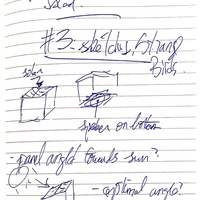 #3. sketches, Strang
Birds.
solar
speaker on bottom
- panel angled towards sun?
- optimal angle?